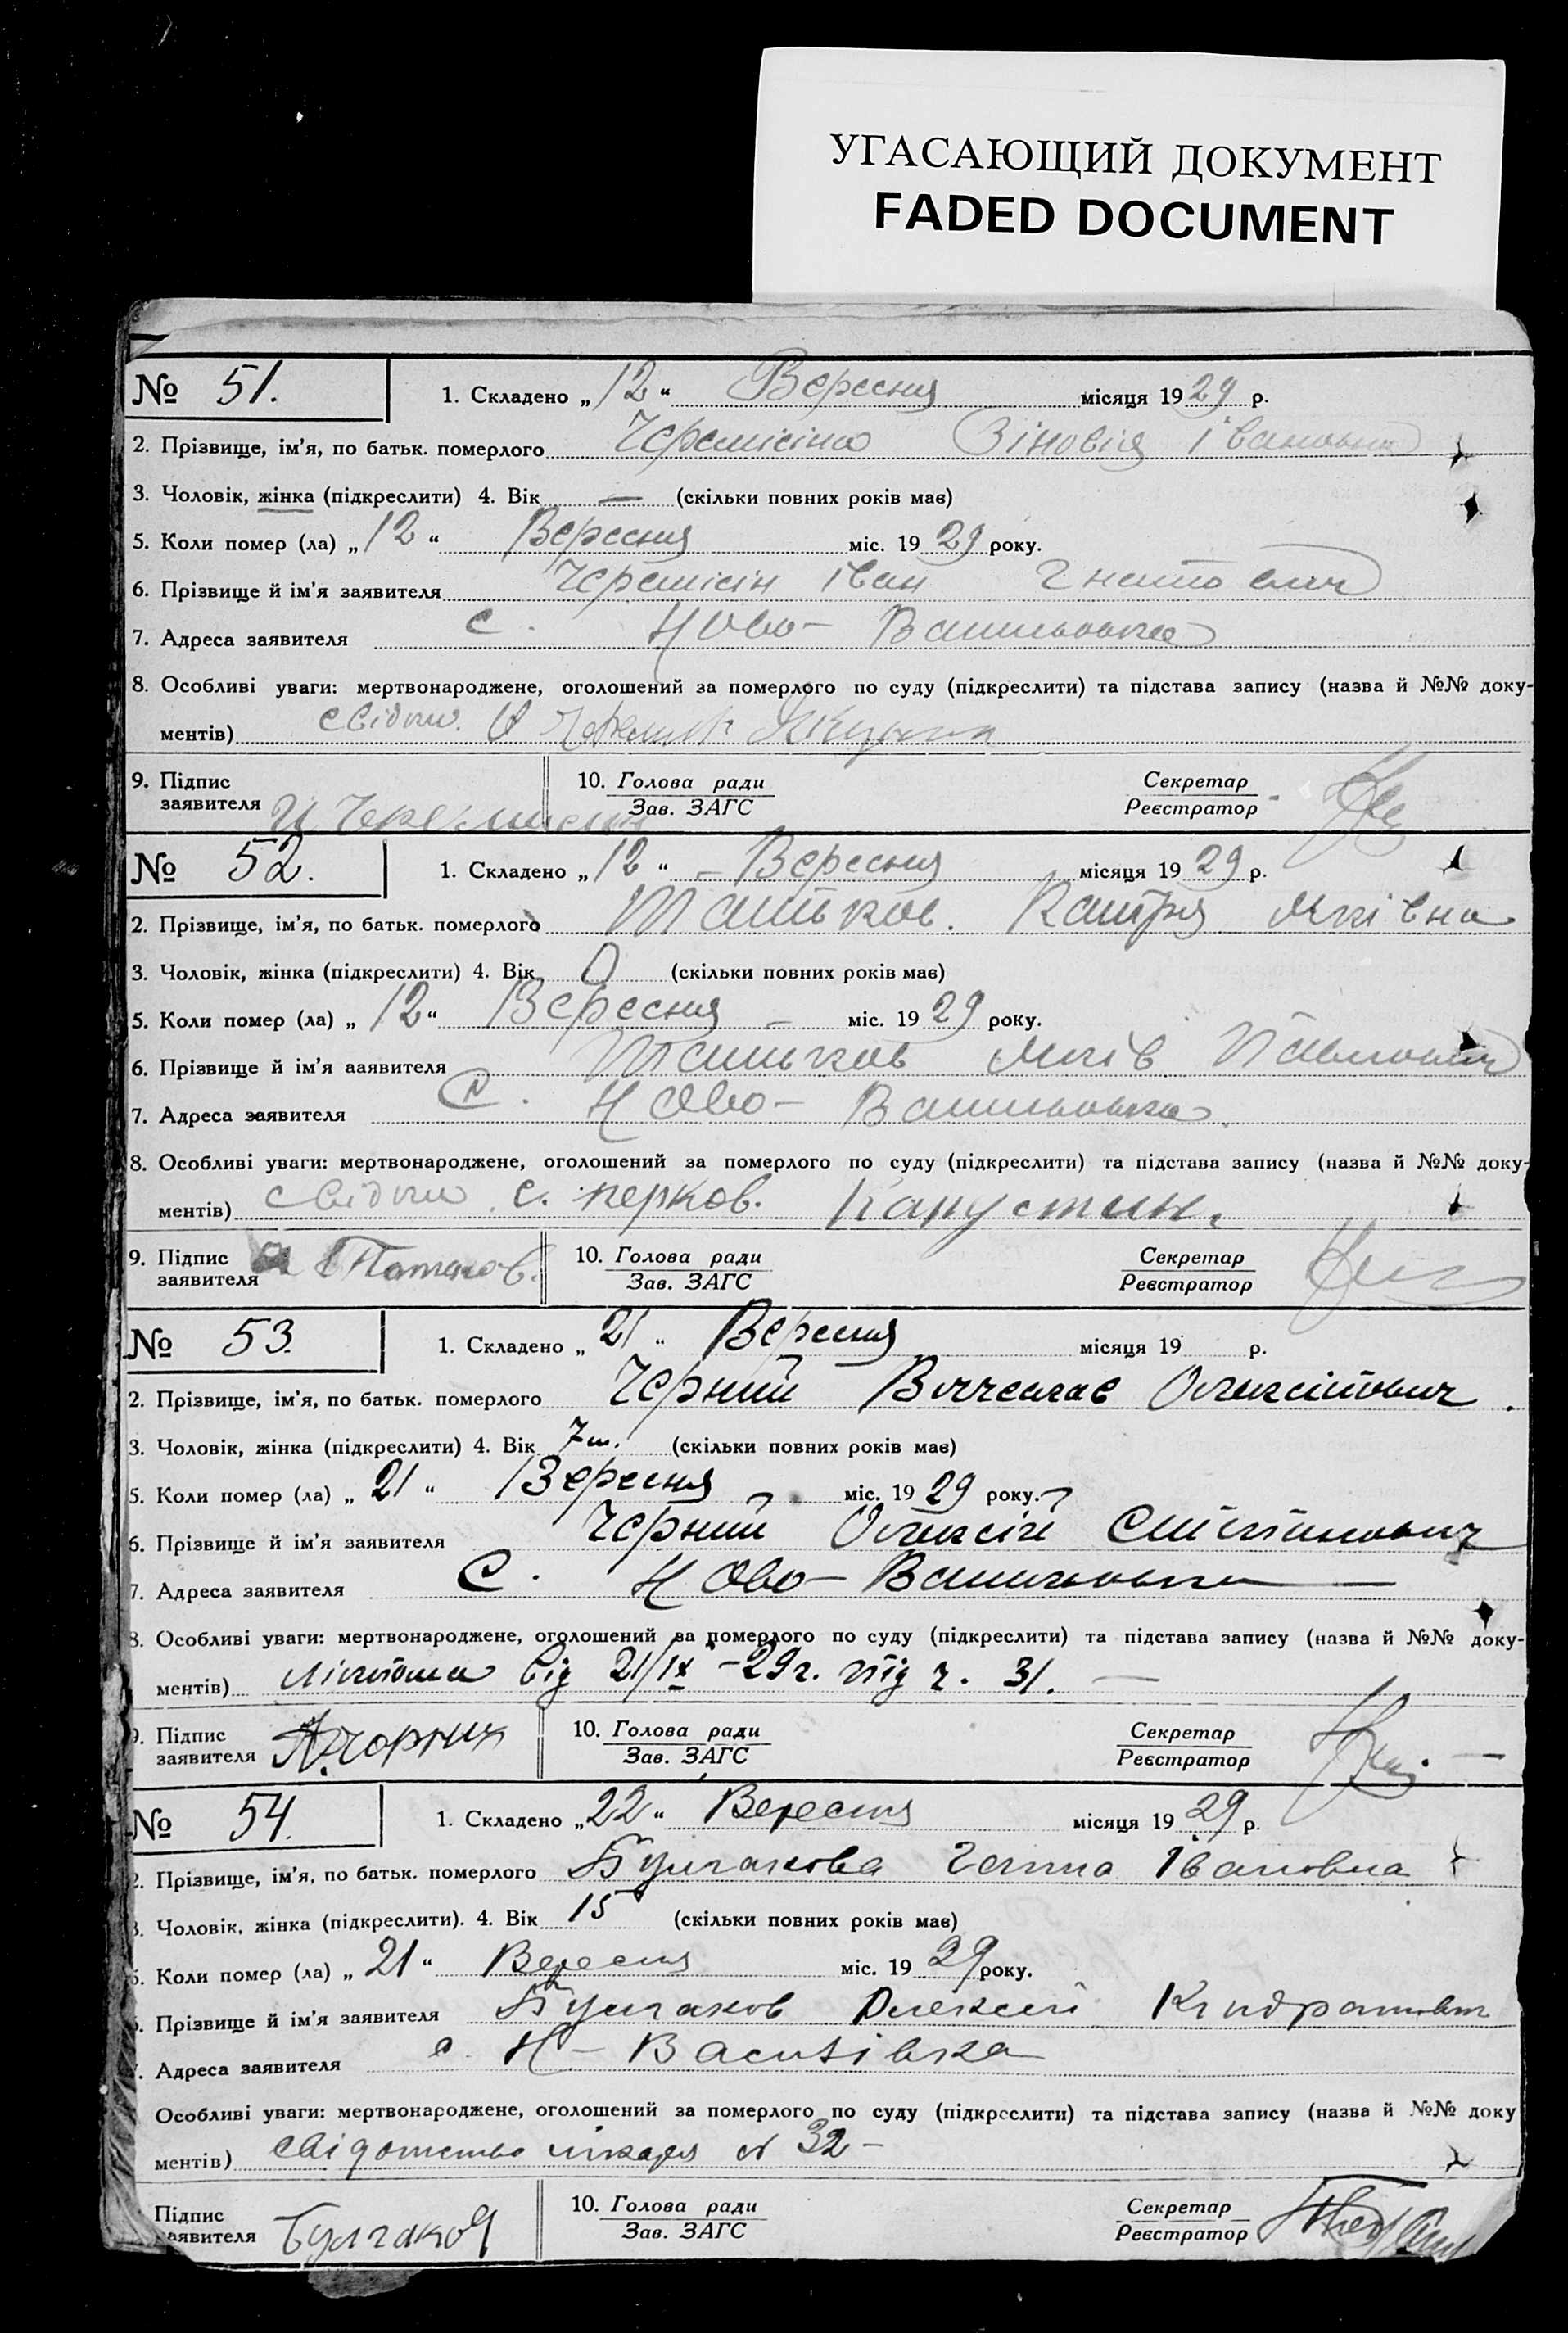 УГАСАЮЩИЙ ДОКУМЕНТ
FADED DOCUMENT
№ 51. 1. Складено „12“ Вересня місяця 1929 р.
2. Прізвище, ім'я, по батьк. померлого Черемісіна Зіновія Івановна
3. Чоловік, жінка (підкреслити) 4. Вік — (скільки повних років має)
5. Коли помер (ла) „12“ Вересня міс. 1929 року.
6. Прізвище й ім'я заявителя Черемісін Іван Гнатович
7. Адреса заявителя с. Ново-Васильовка
8. Особливі уваги: мертвонароджене, оголошений за померлого по суду (підкреслити) та підстава запису (назва й №№ доку-
ментів) свідом.
9. Підпис заявителя И Черемисин 10. Голова ради Зав. ЗАГС Секретар Реєстратор
№ 52. 1. Складено „12“ – Вересня місяця 1929 р.
2. Прізвище, ім'я, по батьк. померлого Катря
3. Чоловік, жінка (підкреслити) 4. Вік 0 (скільки повних років має)
5. Коли помер (ла) „12“ Вересня – міс. 1929 року.
6. Прізвище й ім'я заявителя Павлович
7. Адреса заявителя С. Ново-Васильовка.
8. Особливі уваги: мертвонароджене, оголошений за померлого по суду (підкреслити) та підстава запису (назва й №№ доку-
ментів) свідом. с. церков. Капустин.
9. Підпис заявителя 10. Голова ради Зав. ЗАГС Секретар Реєстратор
№ 53. 1. Складено „21“ Вересня місяця 19 р.
2. Прізвище, ім'я, по батьк. померлого Черний Вячеслав Олексійович.
3. Чоловік, жінка (підкреслити) 4. Вік 7 м. (скільки повних років має)
5. Коли помер (ла) „21“ Вересня – міс. 1929 року.
6. Прізвище й ім'я заявителя Черний Олексій Степанович
7. Адреса заявителя С. Ново-Васильовка —
8. Особливі уваги: мертвонароджене, оголошений за померлого по суду (підкреслити) та підстава запису (назва й №№ доку-
ментів) від 21/IX-29 г. під ч. 31. —
9. Підпис заявителя А. Чорний 10. Голова ради Зав. ЗАГС Секретар Реєстратор
№ 54. 1. Складено „22“ Вересня місяця 1929 р.
2. Прізвище, ім'я, по батьк. померлого Булгакова Ганна Івановна
3. Чоловік, жінка (підкреслити). 4. Вік 15 (скільки повних років має)
5. Коли помер (ла) „21“ Вересня міс. 1929 року.
6. Прізвище й ім'я заявителя Булгаков Олексій Кіндратович
7. Адреса заявителя с. Н-Василівка
Особливі уваги: мертвонароджене, оголошений за померлого по суду (підкреслити) та підстава запису (назва й №№ доку
ментів) свідоцтво лікаря № 32 –
Підпис заявителя Булгаков 10. Голова ради Зав. ЗАГС Секретар Реєстратор